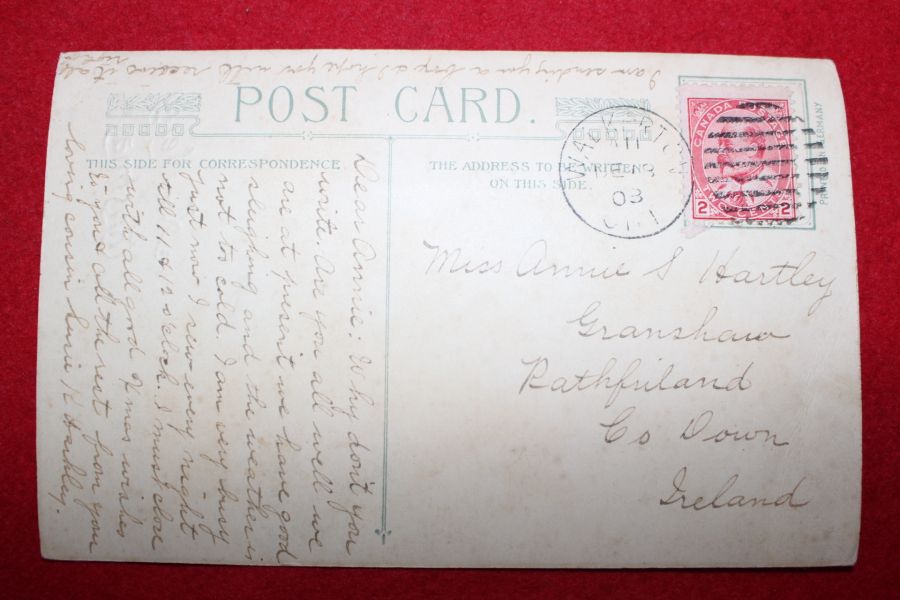 I am sending you a box I hope you will receive it all
POST CARD.
THIS SIDE FOR CORRESPONDENCE.
THE ADDRESS TO BE WRITTEN
ON THIS SIDE.
CANADA
2 2
03
ONT
Dear Annie: Why don't you
write. Are you all well we
are at present we have good
sleighing and the weather is
not to cold. I am very busy
just now I sew every night
till 11 o'clock. I must close
with all good Xmas wishes
to you & all the rest from your
loving cousin K Hartley.
Miss Annie S Hartley
Granshaw
Rathfriland
Co Down
Ireland